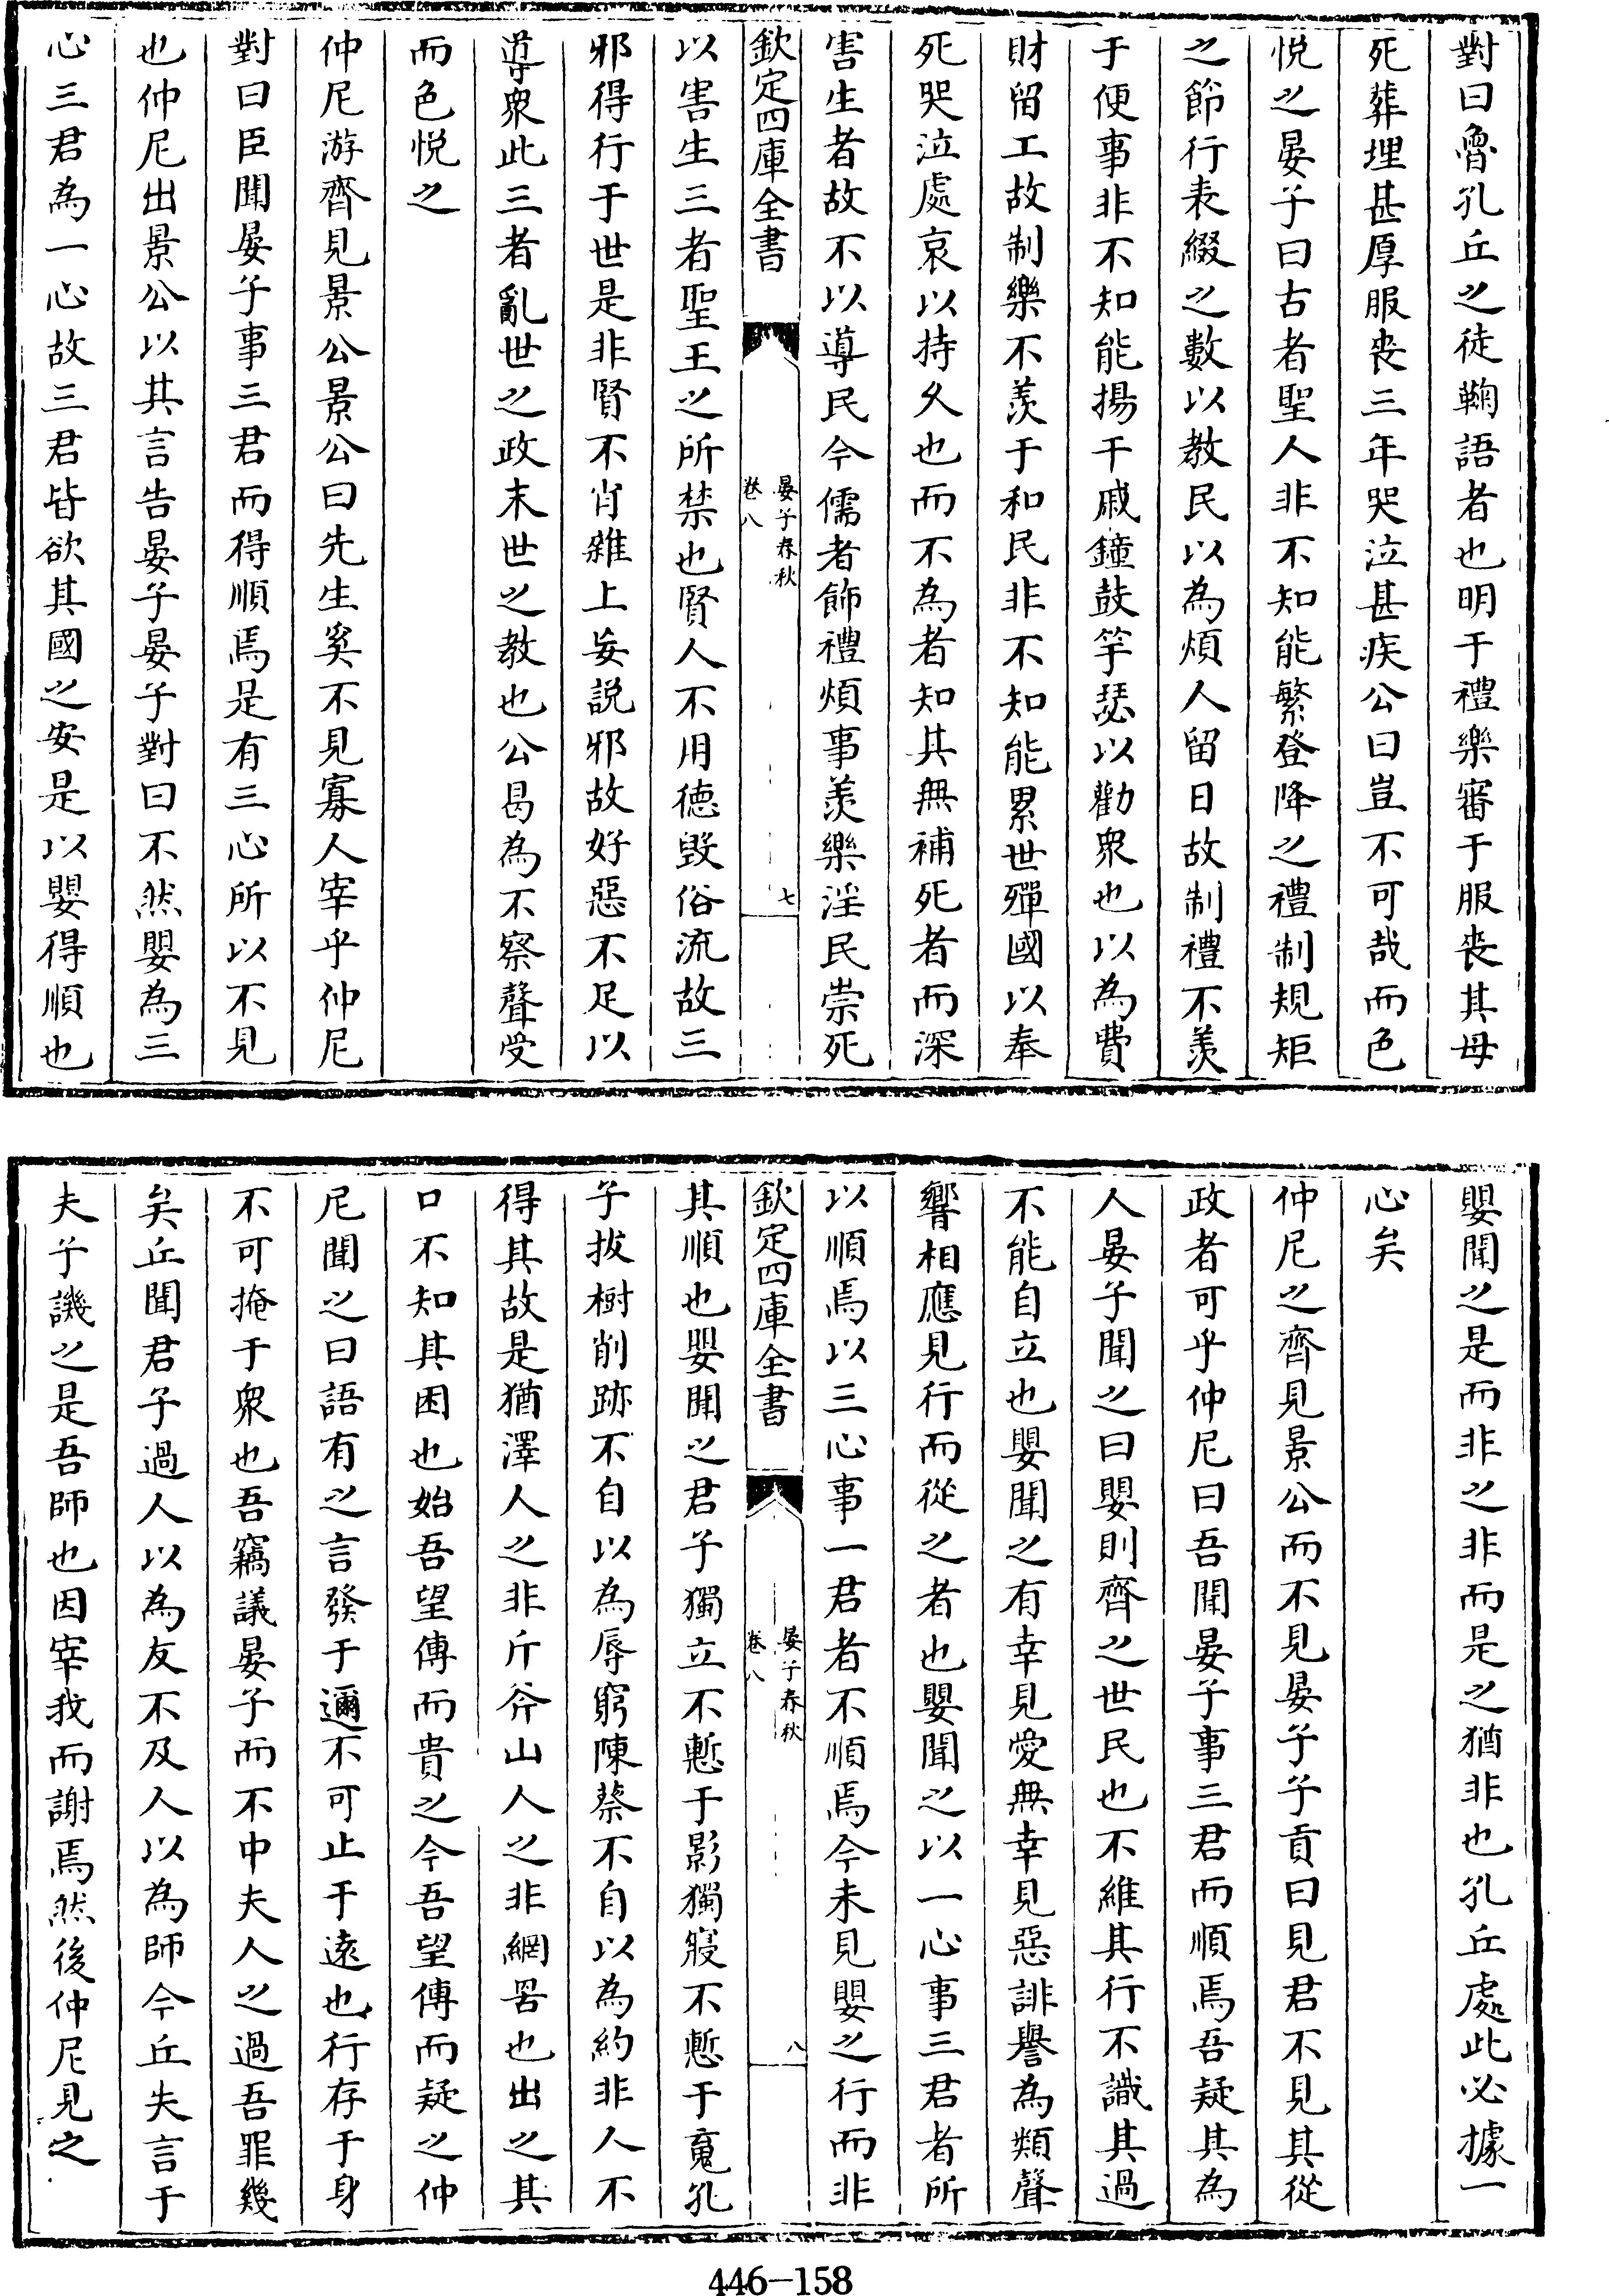 對曰魯孔丘之徒鞠語者也明于禮樂審于服喪其母
死葬埋甚厚服喪三年哭泣甚疾公曰豈不可哉而色
悦之晏子曰古者聖人非不知能繁登降之禮制規矩
之節行表綴之數以教民以為煩人留日故制禮不羡
于便事非不知能揚干戚鐘鼓竽瑟以勸衆也以為費
財留工故制樂不羡于和民非不知能累世殫國以奉
死哭泣處哀以持久也而不為者知其無補死者而深
害生者故不以導民今儒者飾禮煩事羡樂淫民崇死
欽定四庫全書
晏子春秋
卷八
七
以害生三者聖王之所禁也賢人不用德毀俗流故三
邪得行于世是非賢不肖雜上妄説邪故好惡不足以
導衆此三者亂世之政末世之教也公曷為不察聲受
而色悦之
仲尼游齊見景公景公曰先生奚不見寡人宰乎仲尼
對曰臣聞晏子事三君而得順焉是有三心所以不見
也仲尼出景公以其言告晏子晏子對曰不然嬰為三
心三君為一心故三君皆欲其國之安是以嬰得順也
嬰聞之是而非之非而是之猶非也孔丘處此必據一
心矣
仲尼之齊見景公而不見晏子子貢曰見君不見其從
政者可乎仲尼曰吾聞晏子事三君而順焉吾疑其為
人晏子聞之曰嬰則齊之世民也不維其行不識其過
不能自立也嬰聞之有幸見愛無幸見惡誹譽為類聲
響相應見行而從之者也嬰聞之以一心事三君者所
以順焉以三心事一君者不順焉今未見嬰之行而非
欽定四庫全書
晏子春秋
卷八
八
其順也嬰聞之君子獨立不慙于影獨寢不慙于䰟孔
子拔樹削跡不自以為辱窮陳蔡不自以為約非人不
得其故是猶澤人之非斤斧山人之非網罟也出之其
口不知其困也始吾望傳而貴之今吾望傳而疑之仲
尼聞之曰語有之言發于邇不可止于遠也行存于身
不可掩于衆也吾竊議晏子而不中夫人之過吾罪幾
矣丘聞君子過人以為友不及人以為師今丘失言于
夫子譏之是吾師也因宰我而謝焉然後仲尼見之
446-158